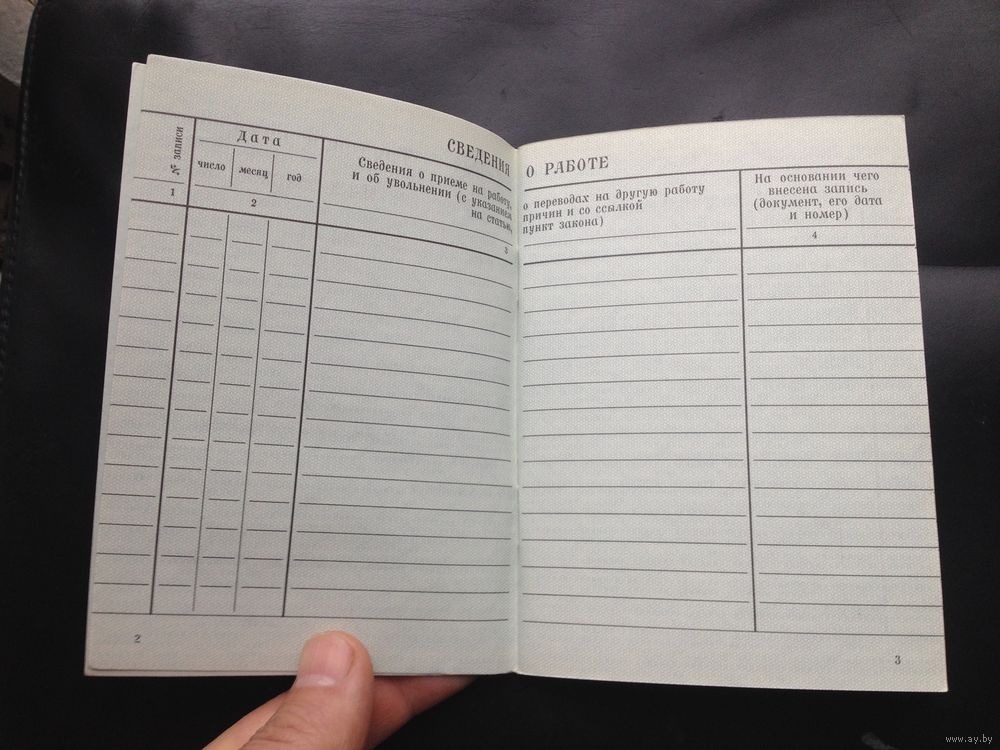 СВЕДЕНИЯ О РАБОТЕ
№ записи
Дата
число месяц год
Сведения о приеме на работу,
и об увольнении (с указанием
на статью,
о переводах на другую работу
причин и со ссылкой
пункт закона)
На основании чего
внесена запись
(документ, его дата
и номер)
1 2 3 4
2
3
www.ay.by